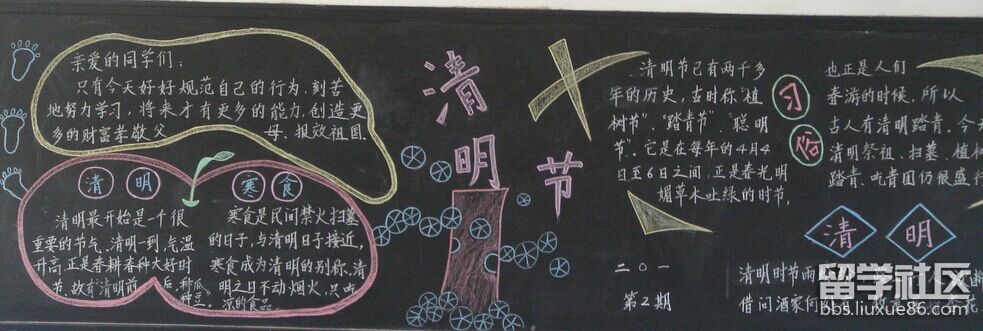 亲爱的同学们：
只有今天好好规范自己的行为.刻苦
地努力学习，将来才有更多的能力，创造更
多的财富孝敬父 母、报效祖国.
清明
清明最开始是一个很
重要的节气、清明一到，气温
升高，正是春耕春种大好时
节.故有"清明前 后.种瓜
种豆。
寒食
寒食是民间禁火扫墓
的日子，与清明日子接近，
寒食成为清明的别称.清
明之日不动烟火，只吃
凉的食品
清明节
清明节已有两千多
年的历史，古时称"植
树节"、"踏青节"、"聪明
节"。它是在每年的4月4
日至6日之间，正是春光明
媚草木吐绿的时节，
习俗
也正是人们
春游的时候，所以
古人有清明踏青.今天
清明祭祖、扫墓、植树
踏青、吃青团仍很盛行
二〇一
第2期
清明
清明时节雨
借问酒家何
留学社区
bbs.liuxue86.com